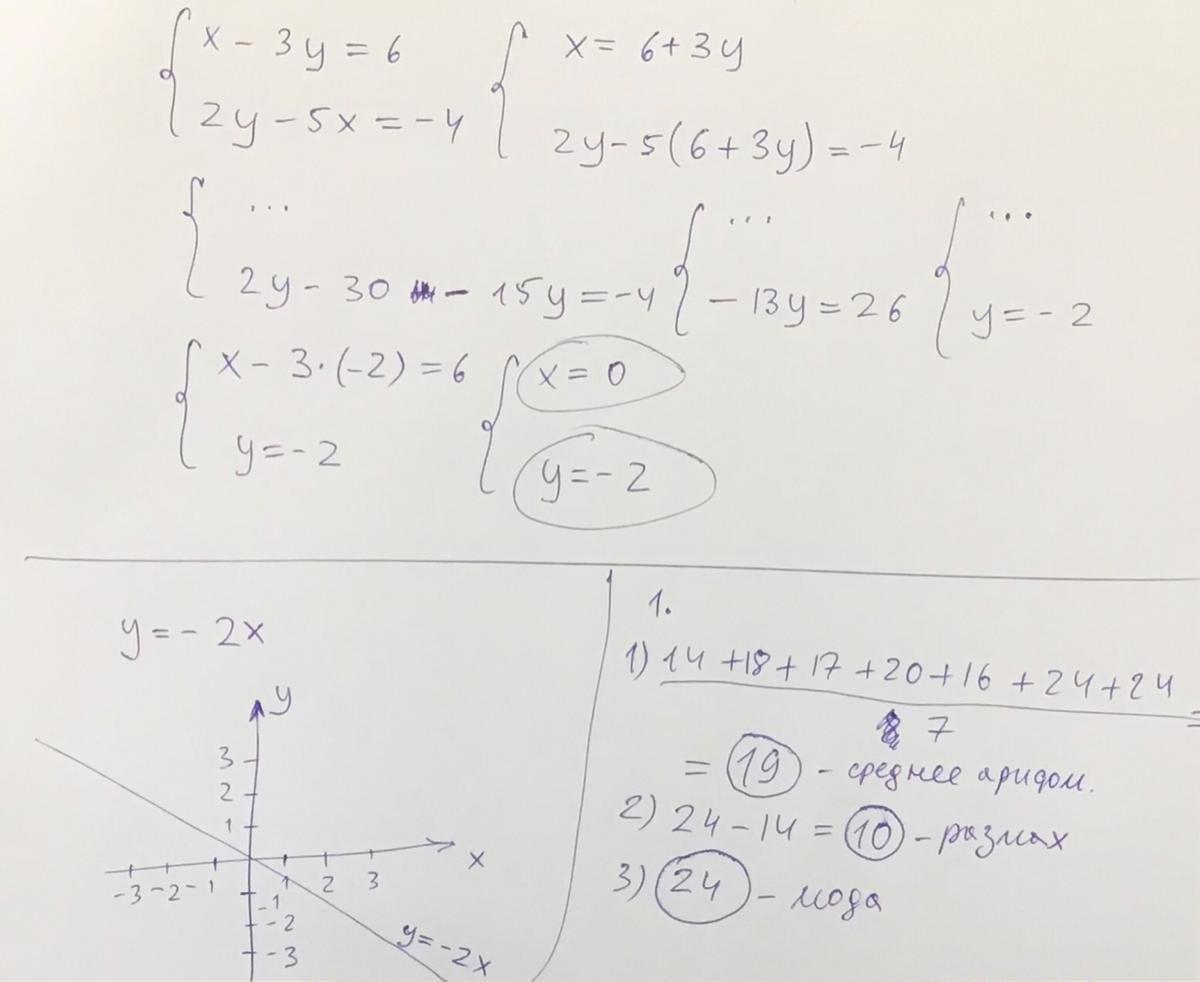 x - 3y = 6 x = 6+3y
2y - 5x = -4 2y-5(6+3y) = -4
... ... ...
2y - 30 - 15y = -4 - 13y = 26 y = - 2
x - 3·(-2) = 6 x = 0
y = - 2 y = - 2
y = - 2x
y
3
2
1
-3 -2 -1 1 2 3 x
-1
-2
-3
y = -2x
1.
1) 14 +18 + 17 +20+16 +24+24 =
7
= 19 - среднее арифм.
2) 24 - 14 = 10 - размах
3) 24 - мода